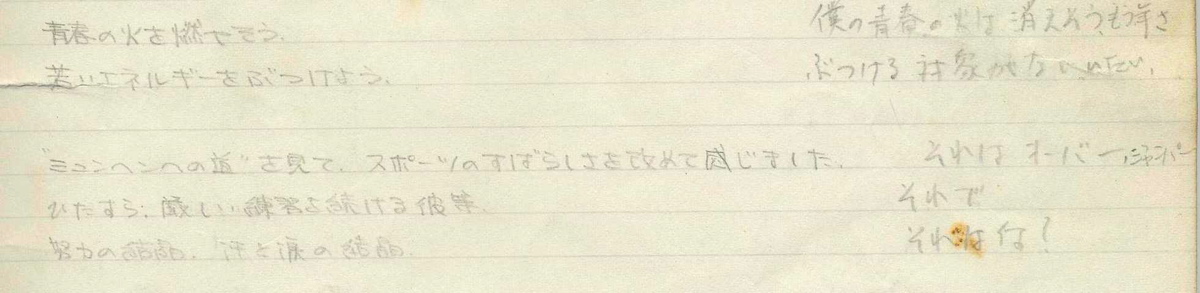 青春の火を燃やそう。
若いエネルギーをぶつけよう。
"ミュンヘンへの道"を見て、スポーツのすばらしさを改めて感じました。
ひたすら、厳しい練習を続ける彼等。
努力の結晶。汗と涙の結晶。
僕の青春の火は消えそう、もう年さ
ぶつける対象がないみたい。
それはオーバー、
それで
それはな？